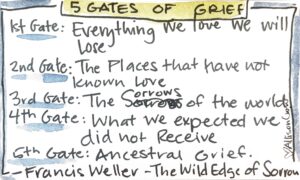 5 GATES OF GRIEF
1st Gate: Everything we love we will
Lose
2nd Gate: The Places that have not
known Love
3rd Gate: The Sorrows of the world
4th Gate: What we expected we
did not Receive
5th Gate: Ancestral Grief.
- Francis Weller - The Wild Edge of Sorrow